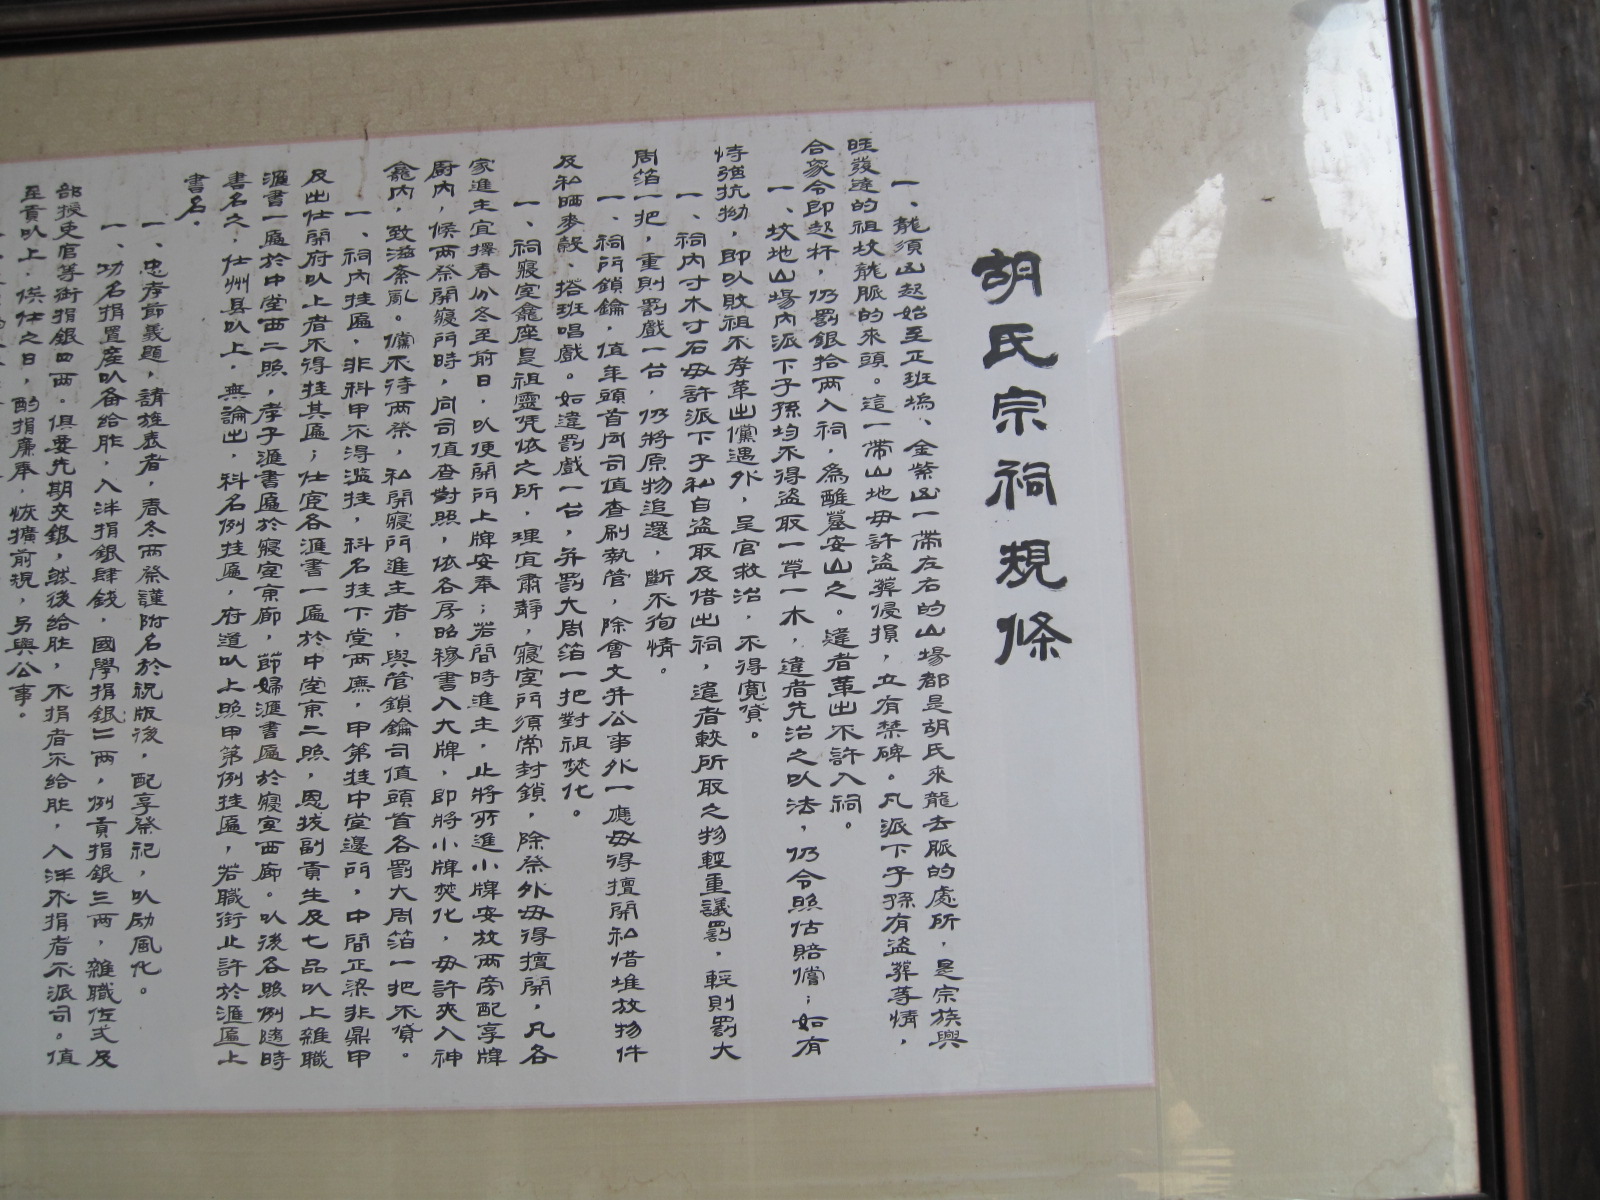 胡氏宗祠規條
一、龍須山起始至正班塢、金紫山一帶左右的山場都是胡氏來龍去脈的處所，是宗族興
旺發達的祖坟龍脈的來頭。這一帶山地毋許盜葬侵損，立有禁碑。凡派下子孫有盜葬等情，
合衆令即起杯，仍罰銀拾兩入祠，為醮墓安山之。違者革出不許入祠。
一、坟地山場內派下子孫均不得盜取一草一木，違者先治之以法，仍令照估賠償；如有
恃強抗拗，即以敗祖不孝革出儻遇外，呈官救治，不得寬貸。
一、祠內寸木寸石毋許派下子私自盜取及借出祠，違者較所取之物輕重議罰，輕則罰大
周箔一把，重則罰戲一台，仍將原物追還，斷不徇情。
一、祠門鎖鑰，值年頭首同司值查刷執管，除會文并公事外一應毋得擅開私借堆放物件
及私晒麥穀、搭班唱戲。如違罰戲一台，并罰大周箔一把對祖焚化。
一、祠寢室龕座是祖靈凭依之所，理宜肅靜，寢室門須常封鎖，除祭外毋得擅開，凡各
家進主宜擇春分冬至前日，以便開門上牌安奉；若間時進主，止將所進小牌安放兩旁配享牌
廚內，候兩祭開寢門時，同司值查對照，依各房昭穆書入大牌，即將小牌焚化，毋許夾入神
龕內，致滋紊亂。儻不待兩祭，私開寢門進主者，與管鎖鑰司值頭首各罰大周箔一把不貸。
一、祠內挂匾，非科甲不得濫挂，科名挂下堂兩廡，甲第挂中堂邊門，中間正梁非鼎甲
及出仕開府以上者不得挂其匾；仕宦各滙書一匾於中堂東二照，恩拔副貢生及七品以上雜職
滙書一匾於中堂西二照，孝子滙書匾於寢室東廊，節婦滙書匾於寢室西廊。以後各照例隨時
書名之；仕州县以上，無論出，科名例挂匾，府道以上照甲第例挂匾，若職銜止許於滙匾上
書名。
一、忠孝節義題，請旌表者，春冬兩祭謹附名於祝版後，配享祭祀，以励風化。
一、功名捐置產以备給胙，入泮捐銀肆錢，國學捐銀二兩，例貢捐銀三兩，雜職佐弍及
部授吏官等銜捐銀四兩。俱要先期交銀，然後給胙，不捐者不給胙，入泮不捐者不派司。值
至貢以上，俟仕之日，酌捐廉奉，恢擴前規，另與公事。